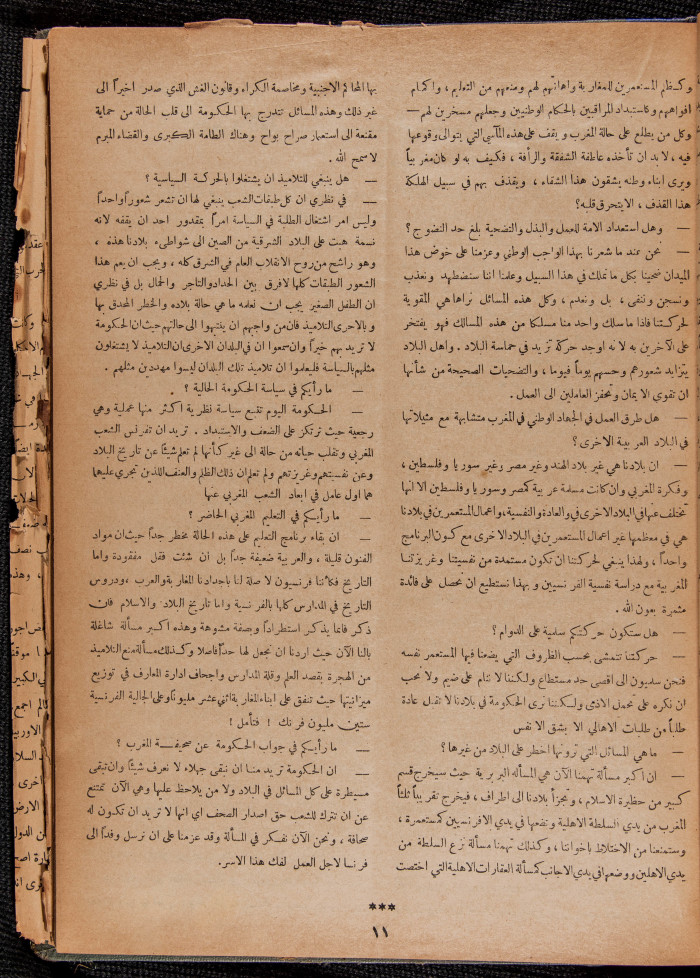 وكظلم المستعمرين للمغاربة واهاناتهم لهم ومنعهم من التعليم ، واكمام
افواههم وكاستبداد المراقبين بالحكام الوطنيين وجعلهم مسخرين لهم —
وكل من يطلع على حالة المغرب و يقف على هذه المآسي التي يتوالى وقوعها
فيه ، لا بد ان تأخذه عاطفة الشفقة والرأفة ، فكيف به لو كان مغربياً
ويرى ابناء وطنه يشقون هذا الشقاء ، ويقذف بهم في سبيل الهلكة
هذا القذف ، الايتحرق قلبه ؟
— وهل استعداد الامة للعمل والبذل والتضحية بلغ حد النضوج ؟
— نحن عند ما شعرنا بهذا الواجب الوطني وعزمنا على خوض هذا
الميدان ضحينا بكل ما نملك في هذا السبيل وعلمنا اننا سنضطهد ونعذب
ونسجن وننفى ، بل ونعدم ، وكل هذه المسائل نراها هي المقوية
لحركتنا فاذا ما سلك واحد منا مسلكا من هذه المسالك فهو يفتخر
على الآخرين به لانه اوجد حركة تزيد في حماسة البلاد . واهل البلاد
يتزايد شعورهم وحسهم يوماً فيوما ، والتضحيات الصحيحة من شأنها
ان تقوي الايمان وتحفز العاملين الى العمل .
— هل طرق العمل في الجهاد الوطني في المغرب متشابهة مع مثيلاتها
في البلاد العربية الاخرى ؟
— ان بلادنا هي غير بلاد الهند وغير مصر وغير سوريا وفلسطين ،
وفكرة المغربي وان كانت مسلمة عربية كمصر وسوريا وفلسطين الا انها
تختلف عنها في البلاد الاخرى في والعادة والنفسية، واعمال المستعمرين في بلادنا
هي في معظمها غير اعمال المستعمرين في البلاد الاخرى مع كون البرنامج
واحداً ، ولهذا ينبغي لحركتنا ان تكون مستمدة من نفسيتنا وغريزتنا
المغربية مع دراسة نفسية الفرنسيين و بهذا نستطيع ان نحصل على فائدة
مثمرة بعون الله .
— هل ستكون حركتكم سلمية على الدوام ؟
— حركتنا تتمشى بحسب الظروف التي يضعنا فيها المستعمر نفسه
فنحن سلميون الى اقصى حد مستطاع ولكننا لا ننام على ضيم ولا نحب
ان نكره على تحمل الاذى ولكننا نرى الحكومة في بلادنا لا تقبل عادة
طلباً من طلبات الاهالي الا بشق الانفس
— ما هي المسائل التي ترونها اخطر على البلاد من غيرها ؟
— ان اكبر مسألة تهمنا الآن هي المسأله البربرية حيث سيخرج قسم
كبير من حظيرة الاسلام ، وتجزأ بلادنا الى اطراف ، فيخرج تقريباً ثلثا
المغرب من يدي السلطة الاهلية ونضعها في يدي الافرنسيين كمستعمرة ،
وستمنعنا من الاختلاط باخواننا ، وكذلك تهمنا مسألة نزع السلطة من
يدي الاهلين ووضعها في يدي الاجانب كمسألة العقارات الاهلية التي اختصت
بها المحاكم الاجنبية ومخاصمة الكراء وقانون الغش الذي صدر اخيراً الى
غير ذلك وهذه المسائل تتدرج بها الحكومة الى قلب الحالة من حماية
مقنعة الى استعمار صراح بواح وهناك الطامة الكبرى والقضاء المبرم
لا سمح الله .
— هل ينبغي للتلاميذ ان يشتغلوا بالحركة السياسية ؟
— في نظري ان كل طبقات الشعب ينبغي لها ان تشعر شعوراً واحداً
وليس امر اشتغال الطلبة في السياسة امراً بمقدور احد ان يقفه لانه
نسمة هبت على البلاد الشرقية من الصين الى شواطىء بلادنا هذه ،
وهو راشح من روح الانقلاب العام في الشرق كله ، ويجب ان يعم هذا
الشعور الطبقات كلها لا فرق بين الحداد والتاجر والحمال بل في نظري
ان الطفل الصغير يجب ان نعلمه ما هي حالة بلاده والخطر المحدق بها
وبالاحرى التلاميذ فان من واجبهم ان ينتبهوا الى حالتهم حيث ان الحكومة
لا تريد بهم خيراً وان سمعوا ان في البلدان الاخرى ان التلاميذ لا يشتغلون
مثلهم بالسياسة فليعلموا ان تلاميذ تلك البلدان ليسوا مهددين مثلهم .
— ما رأيكم في سياسة الحكومة الحالية ؟
— الحكومة اليوم تتبع سياسة نظرية اكثر منها عملية وهي
رجعية حيث ترتكز على الضعف والاستبداد . تريد ان تفرنس الشعب
المغربي وتقلب حياته من حالة الى غير كأنها لم تعلم شيئاً عن تاريخ البلاد
وعن نفسيتهم وغريزتهم ولم تعلم ان ذلك الظلم والعنف اللذين تجري عليهما
هما اول عامل في ابعاد الشعب المغربي عنها
— ما رأيكم في التعليم المغربي الحاضر ؟
— ان بقاء برنامج التعليم على هذه الحالة مخطر جداً حيث ان مواد
الفنون قليلة ، والعربية ضعيفة جداً بل ان شئت فقل مفقودة واما
التاريخ فكأننا فرنسيون لا صلة لنا باجدادنا المغاربة والعرب ، ودروس
التاريخ في المدارس كلها بالفرنسية واما تاريخ البلاد والاسلام فان
ذكر فانما يذكر استطراداً وبصفة مشوهة وهذه اكبر مسألة شاغلة
بالنا الآن حيث اردنا ان نجعل لها حداً فاصلا وكذلك مسألة منع التلاميذ
من الهجرة بقصد العلم وقلة المدارس واجحاف ادارة المعارف في توزيع
ميزانيتها حيث تنفق على ابناء المغاربة اثني عشر مليوناً وعلى الجالية الفرنسية
ستين مليون فرنك ! فتأمل !
— ما رأيكم في جواب الحكومة عن صحيفة المغرب ؟
— ان الحكومة تريد منا ان نبقى جهلاء لا نعرف شيئاً وان تبقى
مسيطرة على كل المسائل في البلاد ولا من يلاحظ عليها وهي الآن تمتنع
عن ان تترك للشعب حق اصدار الصحف اي انها لا تريد ان تكون له
صحافة ، ونحن الآن نفكر في المسألة وقد عزمنا على ان نرسل وفداً الى
فرنسا لاجل العمل لفك هذا الاسر.
***
١١